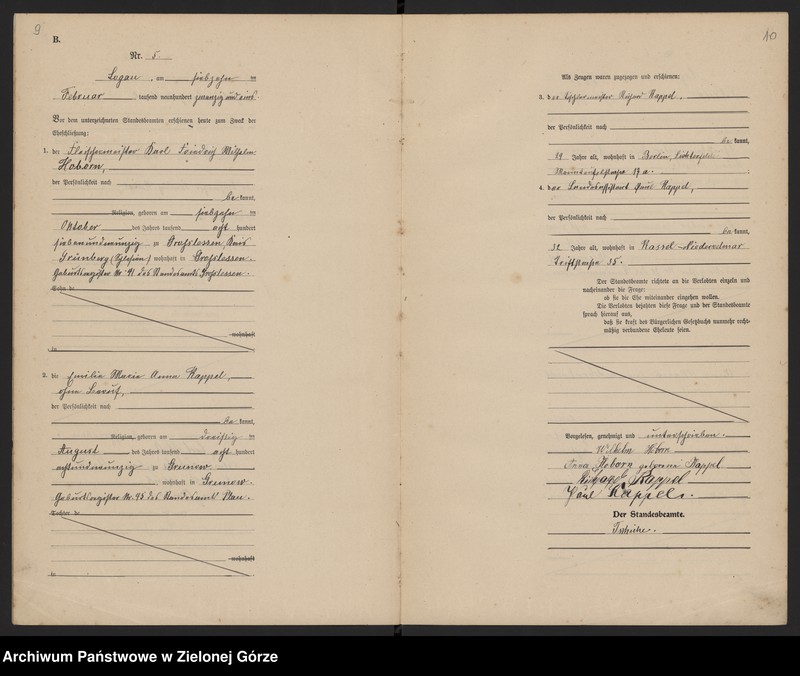 9
B.
Nr. 5.
Logau, am siebzehn ten
Februar tausend neunhundert zwanzig und eins
Vor dem unterzeichneten Standesbeamten erschienen heute zum Zweck der
Eheschließung:
1. der Fleischermeister Karl Friedrich Wilhelm
Hoborn,
der Persönlichkeit nach
be kannt,
Religion, geboren am siebzehn ten
Oktober des Jahres tausend acht hundert
siebenundneunzig zu Großlessen, Kreis
Grünberg (Schlesien) wohnhaft in Großlessen.
Geburtsregister Nr. 41 des Standesamts Großlessen.
Sohn de
wohnhaft
in
2. die Emilie Marie Anna Kappel,
ohne Beruf,
der Persönlichkeit nach
be kannt,
Religion, geboren am dreißig ten
August des Jahres tausend acht hundert
achtundneunzig zu Grunow
wohnhaft in Grunow.
Geburtsregister Nr. 45 des Standesamts
Tochter de
wohnhaft
in
10
Als Zeugen waren zugezogen und erschienen:
3. der Tischlermeister Kappel,
der Persönlichkeit nach
be kannt,
Jahre alt, wohnhaft in Berlin, Lichterfelde
Manteuffelstraße 17 a.
4. der Paul Kappel,
der Persönlichkeit nach
be kannt,
32 Jahre alt, wohnhaft in Kassel-
35.
Der Standesbeamte richtete an die Verlobten einzeln und
nacheinander die Frage:
ob sie die Ehe miteinander eingehen wollen.
Die Verlobten bejahten diese Frage und der Standesbeamte
sprach hierauf aus,
daß sie kraft des Bürgerlichen Gesetzbuchs nunmehr recht-
mäßig verbundene Eheleute seien.
Vorgelesen, genehmigt und unterschrieben.
Wilhelm Hoborn
Anna Hoborn geborene Kappel
Kappel
Paul Kappel.
Der Standesbeamte.
Archiwum Państwowe w Zielonej Górze